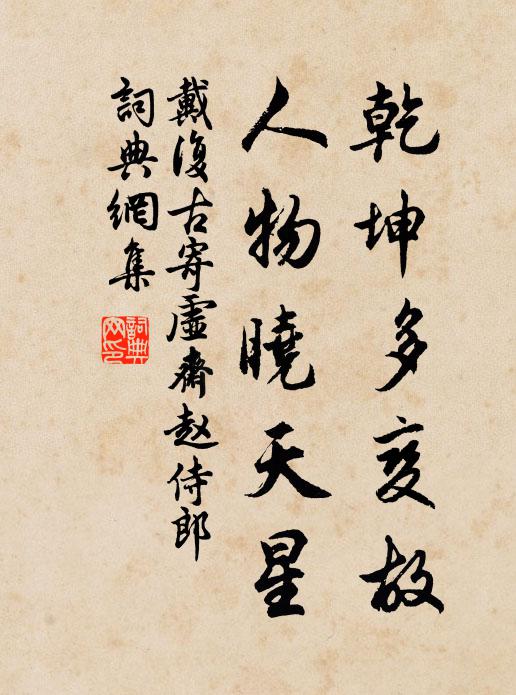 乾坤多变故
人物曉天星
戴復古寄虛齋赵侍郎
詞典網集
詞典網印